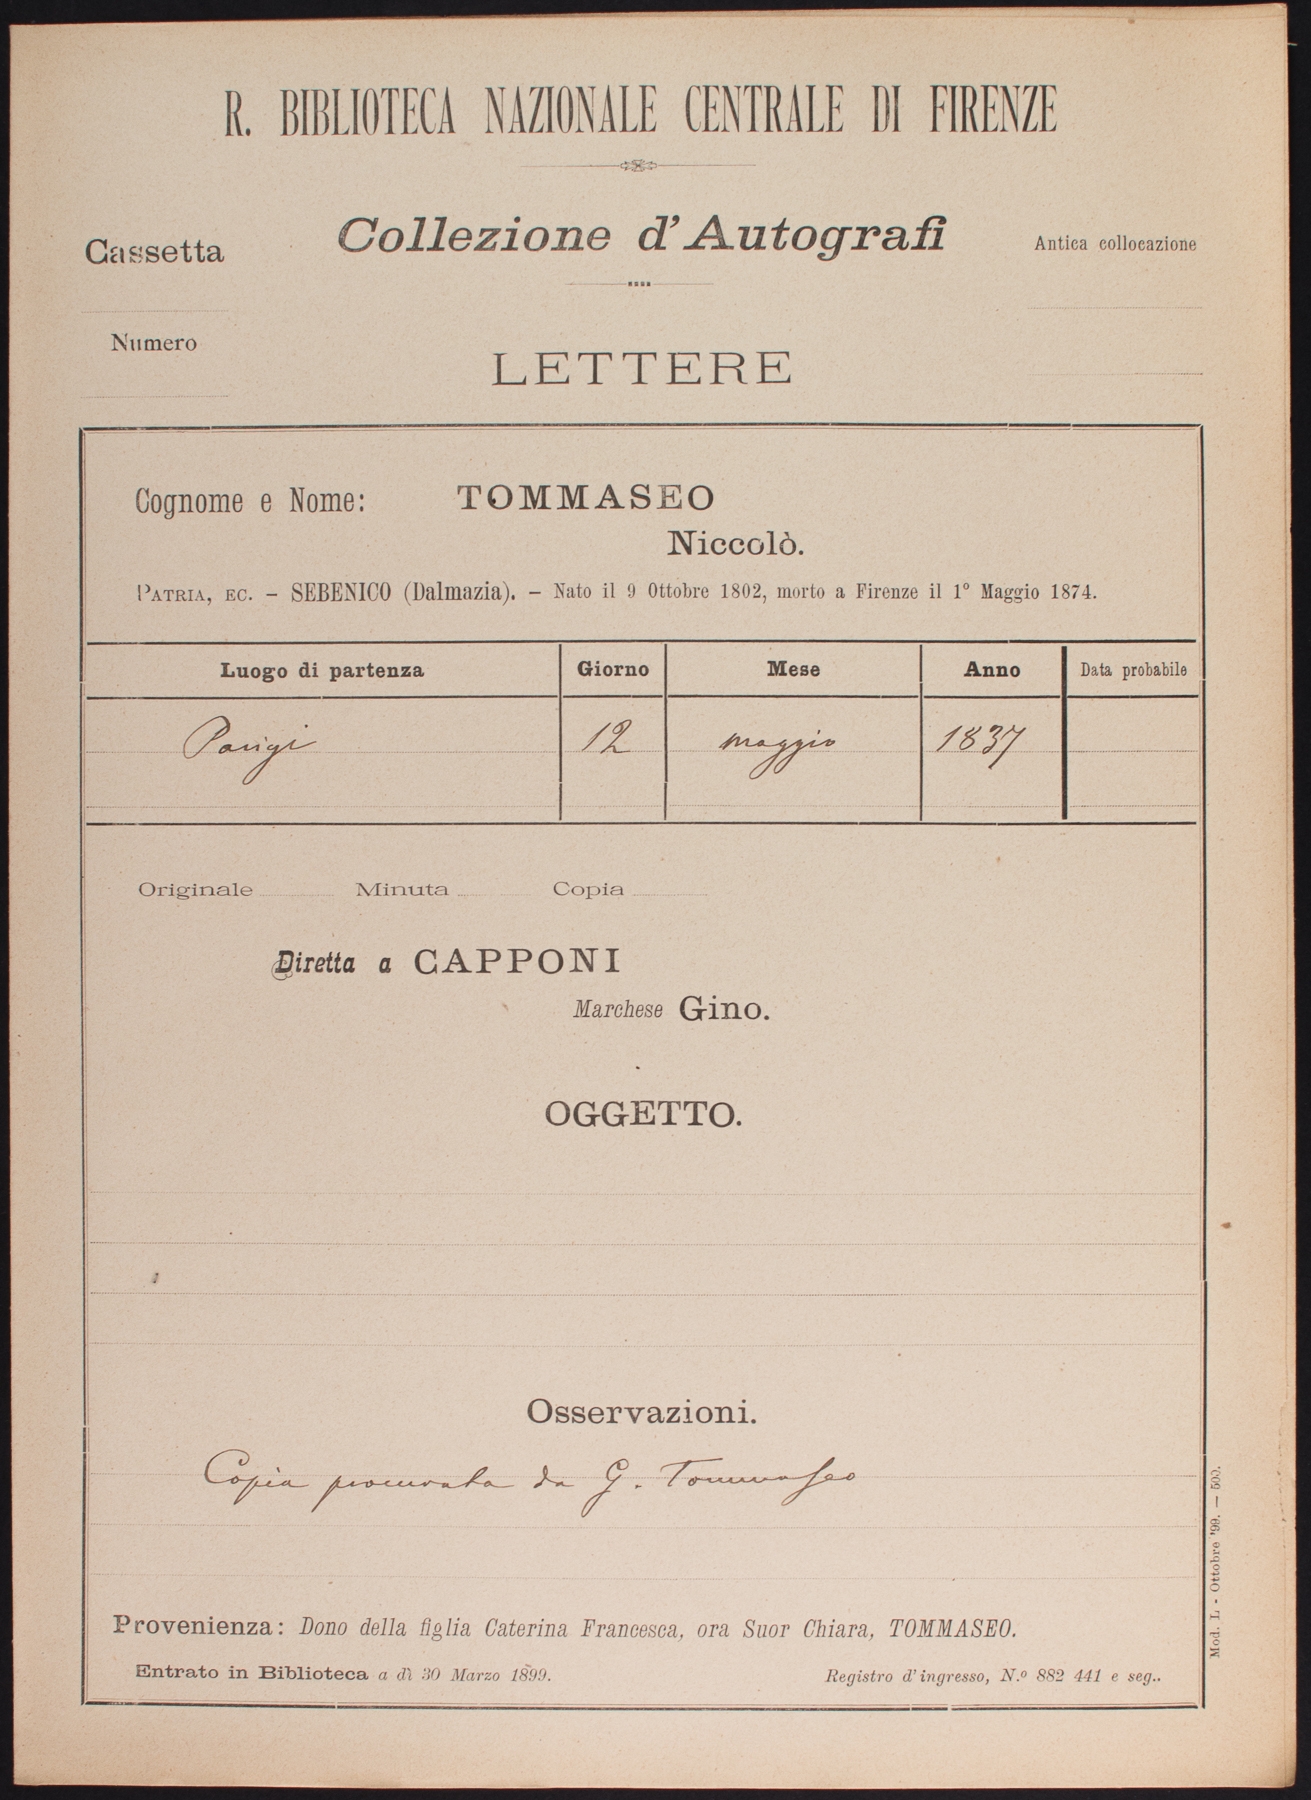 R. BIBLIOTECA NAZIONALE CENTRALE DI FIRENZE
Cassetta
Collezione d'Autografi
Antica collocazione
Numero
LETTERE
Cognome e Nome: TOMMASEO
Niccolò.
PATRIA, EC. - SEBENICO (Dalmazia). - Nato il 9 Ottobre 1802, morto a Firenze il 1° Maggio 1874.
Luogo di partenza Giorno Mese Anno Data probabile
Parigi 12 maggio 1837
Originale Minuta Copia
Diretta a CAPPONI
Marchese Gino.
OGGETTO.
Osservazioni.
Copia procurata da G. Tommaseo
Provenienza: Dono della figlia Caterina Francesca, ora Suor Chiara, TOMMASEO.
Entrato in Biblioteca a dì 30 Marzo 1899. Registro d'ingresso, N.o 882 441 e seg..
Mod. L - Ottobre '99. - 500.